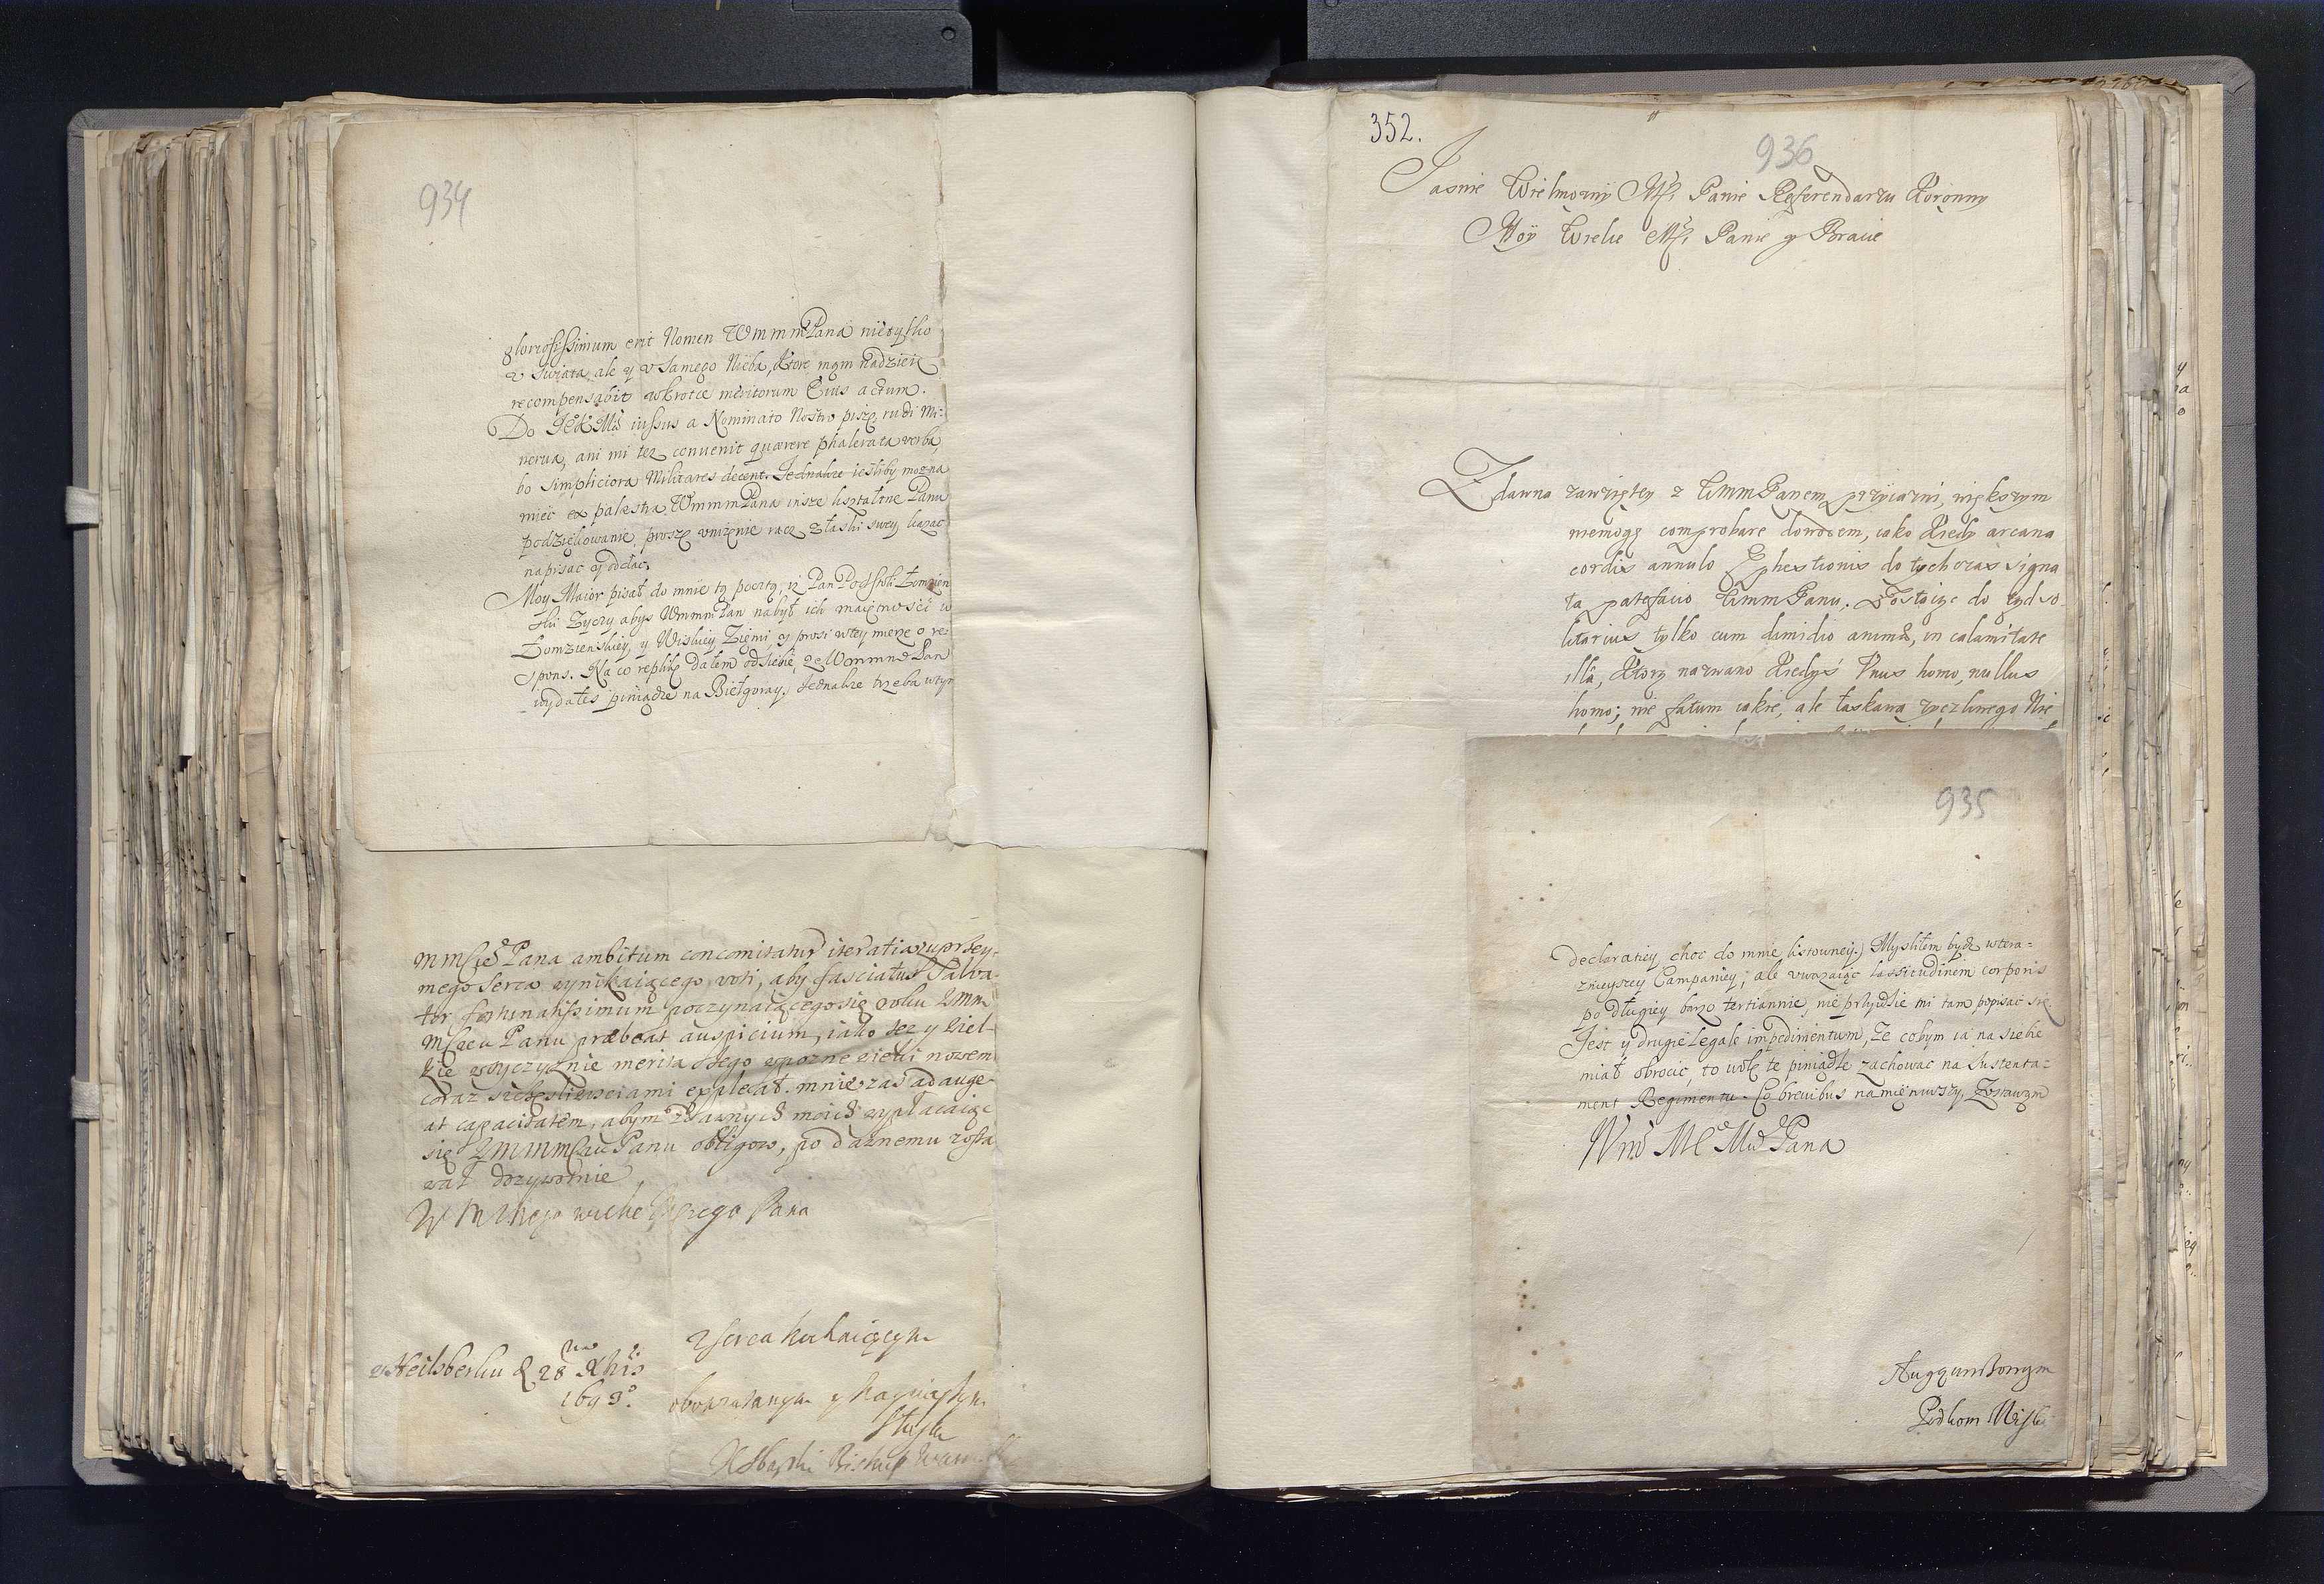 934
gloriosissimum erit Nomen WmmmPana nietylko
v swiata, ale y v Samego Nieba, ktore mam nadzieię
recompensabit wkrotce meritorum Eius actum.
Do iussus a Nominato Nostro piszę, rudi Mi-
nerua, ani mi tez conuenit quærere phalerata verba,
bo simpliciora Militares decent. Jednakze iesliby mozna
miec ex palæstra WmmmPana insze ksztaltne Panu
podziękowanie, proszę vnizenie racz z łaski swey kazac
napisac y odełac.
Moy Maior pisał do mnie tą pocztą, iz Pan Podstoli Łomzien
ski Zyczy abys WmmmPan nabył ich maiętnosci w
Łomzienskiey, y Wiskiey Ziemi, y prosi wtey mierze o re-
spons. Na co replikę dałem odsiebie, ze Pan
wydałes piniądze na Biełgoray. Jednakze trzeba wtym
mmsciẽ Pana ambitum concomitatur iteratia vprzey-
mego serca wynikaiącego, voti, aby fasciatus Salva-
tor fortunatissimum poczynaiącego się roku Wmm
Mscu Panu præbeat auspicium, iako tez y Wiel-
kie w oyczyznie merita Jego w pozne wieki nowem
coraz sczęsliwsciami expleat. mnie zas adauge-
at capacitatem, abym dawnych moich wypłacaiąc
się Panu obligow, po dawnemu zosta
wał dozywotnie
W M Mego wielce Mscego Pana
z serca kochaiącym
w Heilsberku d 28 Xbris
1693°.
obowiązanym y
sługą
Zbąski Biskup Warm
352.
936
Jasnie Wielmozny Msci Panie Referendarzu Koronny
Moy Wielce Msci Panie y Bracie
Zdawna zawziętey z WmmPanem przyiazni, większym
niemogę comprobare dowodem, iako kiedy arcana
cordis annulo Ephestionis do tychczas signa
ta patefacio WmmPanu. Zostaiąc do tąd so-
litarius tylko cum dimidio animæ, in calamitate
illâ, ktorą nazwano kiedyś Vnus homo, nullus
homo; nie fatum iakie, ale łaskawą zyczliwego Nie
935
declaratiey, choc do mnie listowney.) Mysliłem bydz wtera-
znieyszey Campaniey; ale vwazaiąc lassitudinem corporis
po długiey barzo tertiannie, nie przyidzie mi tam popisac się
Jest y drugie legale impedimentum, ze cobym ia na siebie
miał obrocic, to wolę te piniądze zachowac na Sustenta-
ment Regimentu. Co breuibus namieniwszy, Zostawam
Wmẽ Mẽ Mẽ Pana
Podkom